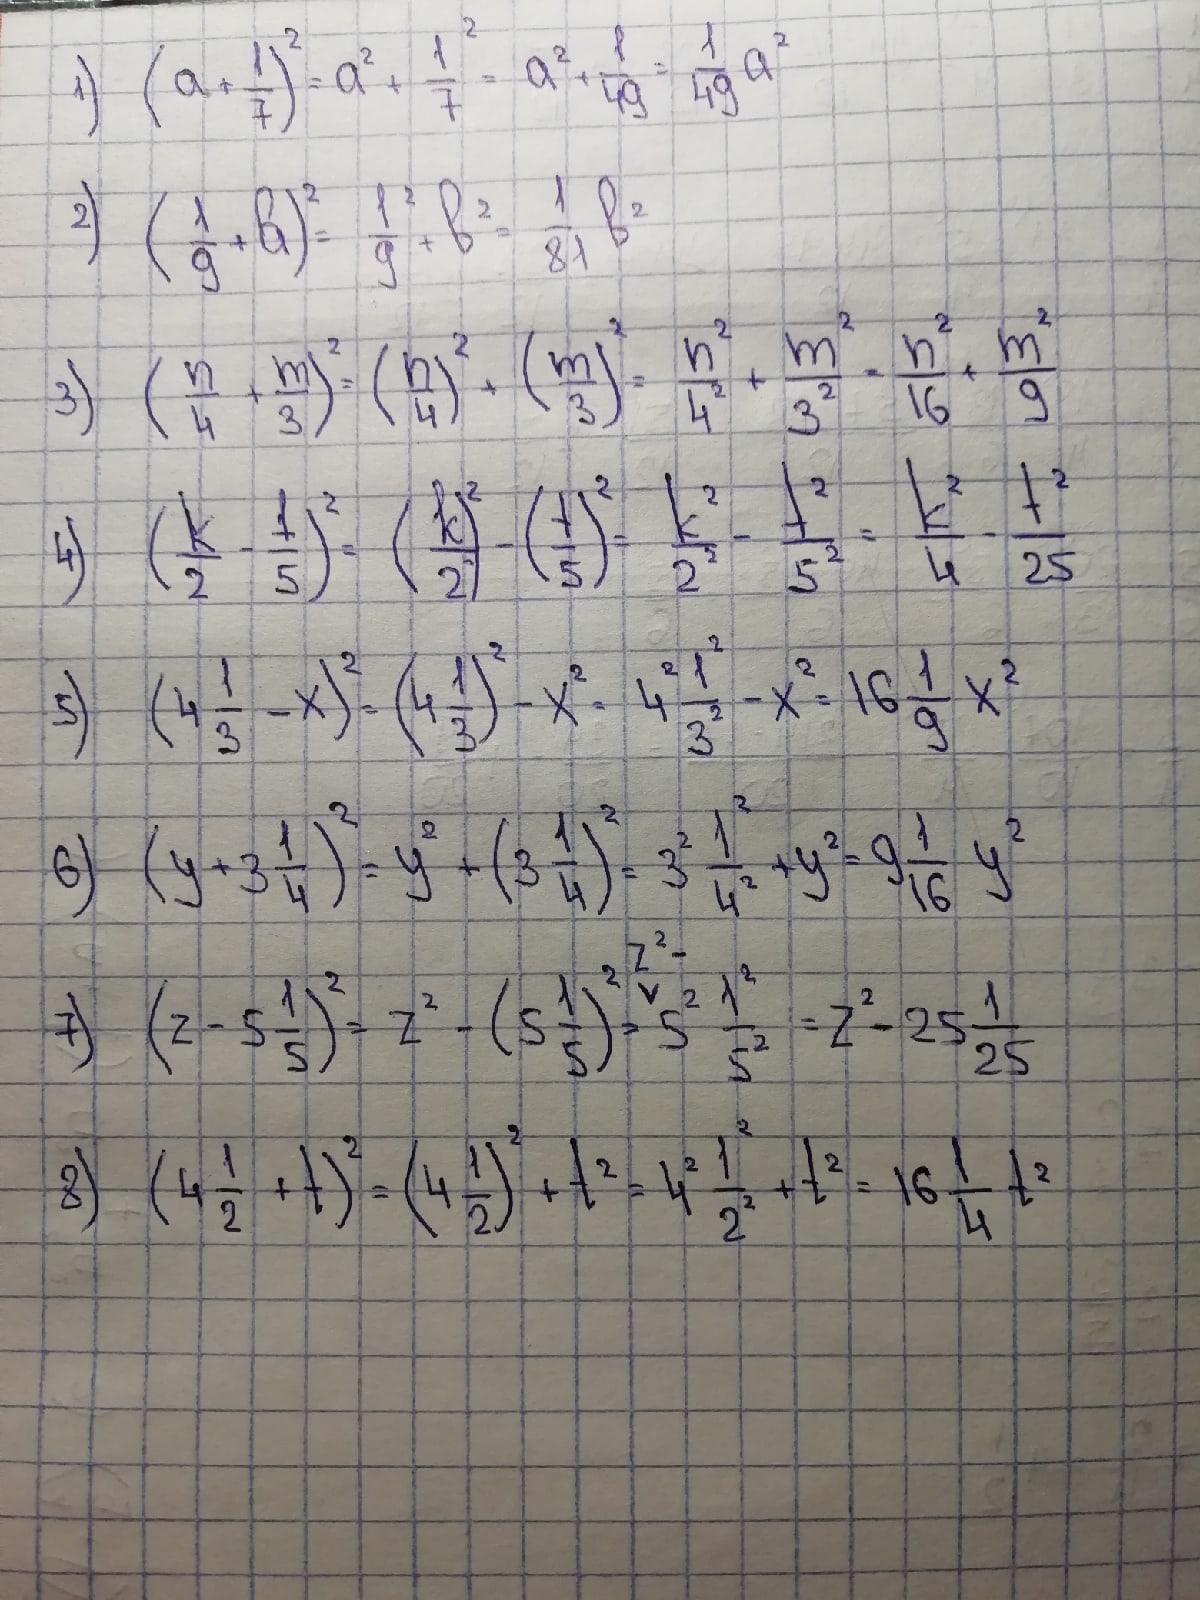 1) (a + 1/7)² = a² + 1²/7 = a² + 1/49 = 1/49 a²
2) (1/9 + b)² = 1²/9 + b² = 1/81 b²
3) (n/4 + m/3)² = (n/4)² + (m/3)² = n²/4² + m²/3² = n²/16 + m²/9
4) (k/2 - t/5)² = (k/2)² - (t/5)² = k²/2² - t²/5² = k²/4 - t²/25
5) (4 1/3 - x)² = (4 1/3)² - x² = 4² 1²/3² - x² = 16 1/9 x²
6) (y + 3 1/4)² = y² + (3 1/4)² = 3² 1²/4² + y² = 9 1/16 y²
7) (z - 5 1/5)² = z² - (5 1/5)² = z² - 5² 1²/5² = z² - 25 1/25
8) (4 1/2 + t)² = (4 1/2)² + t² = 4² 1²/2² + t² = 16 1/4 t²